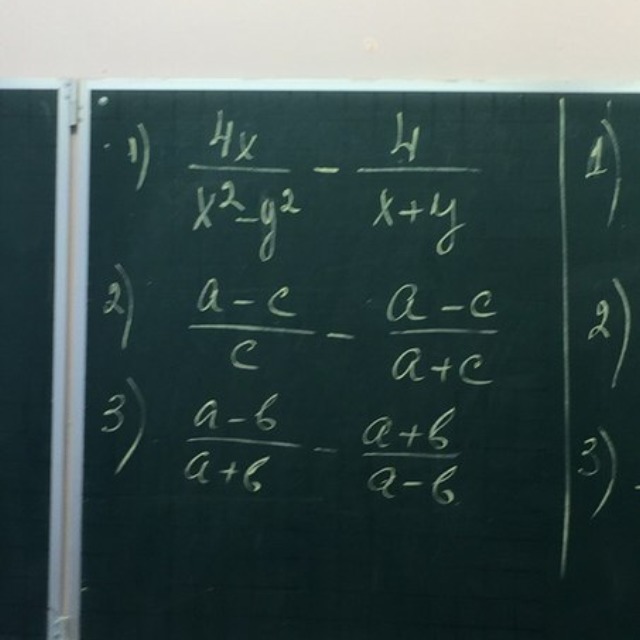 1) 4x/(x²-y²) - 4/(x+y)
2) (a-c)/c - (a-c)/(a+c)
3) (a-b)/(a+b) - (a+b)/(a-b)
1)
2)
3)